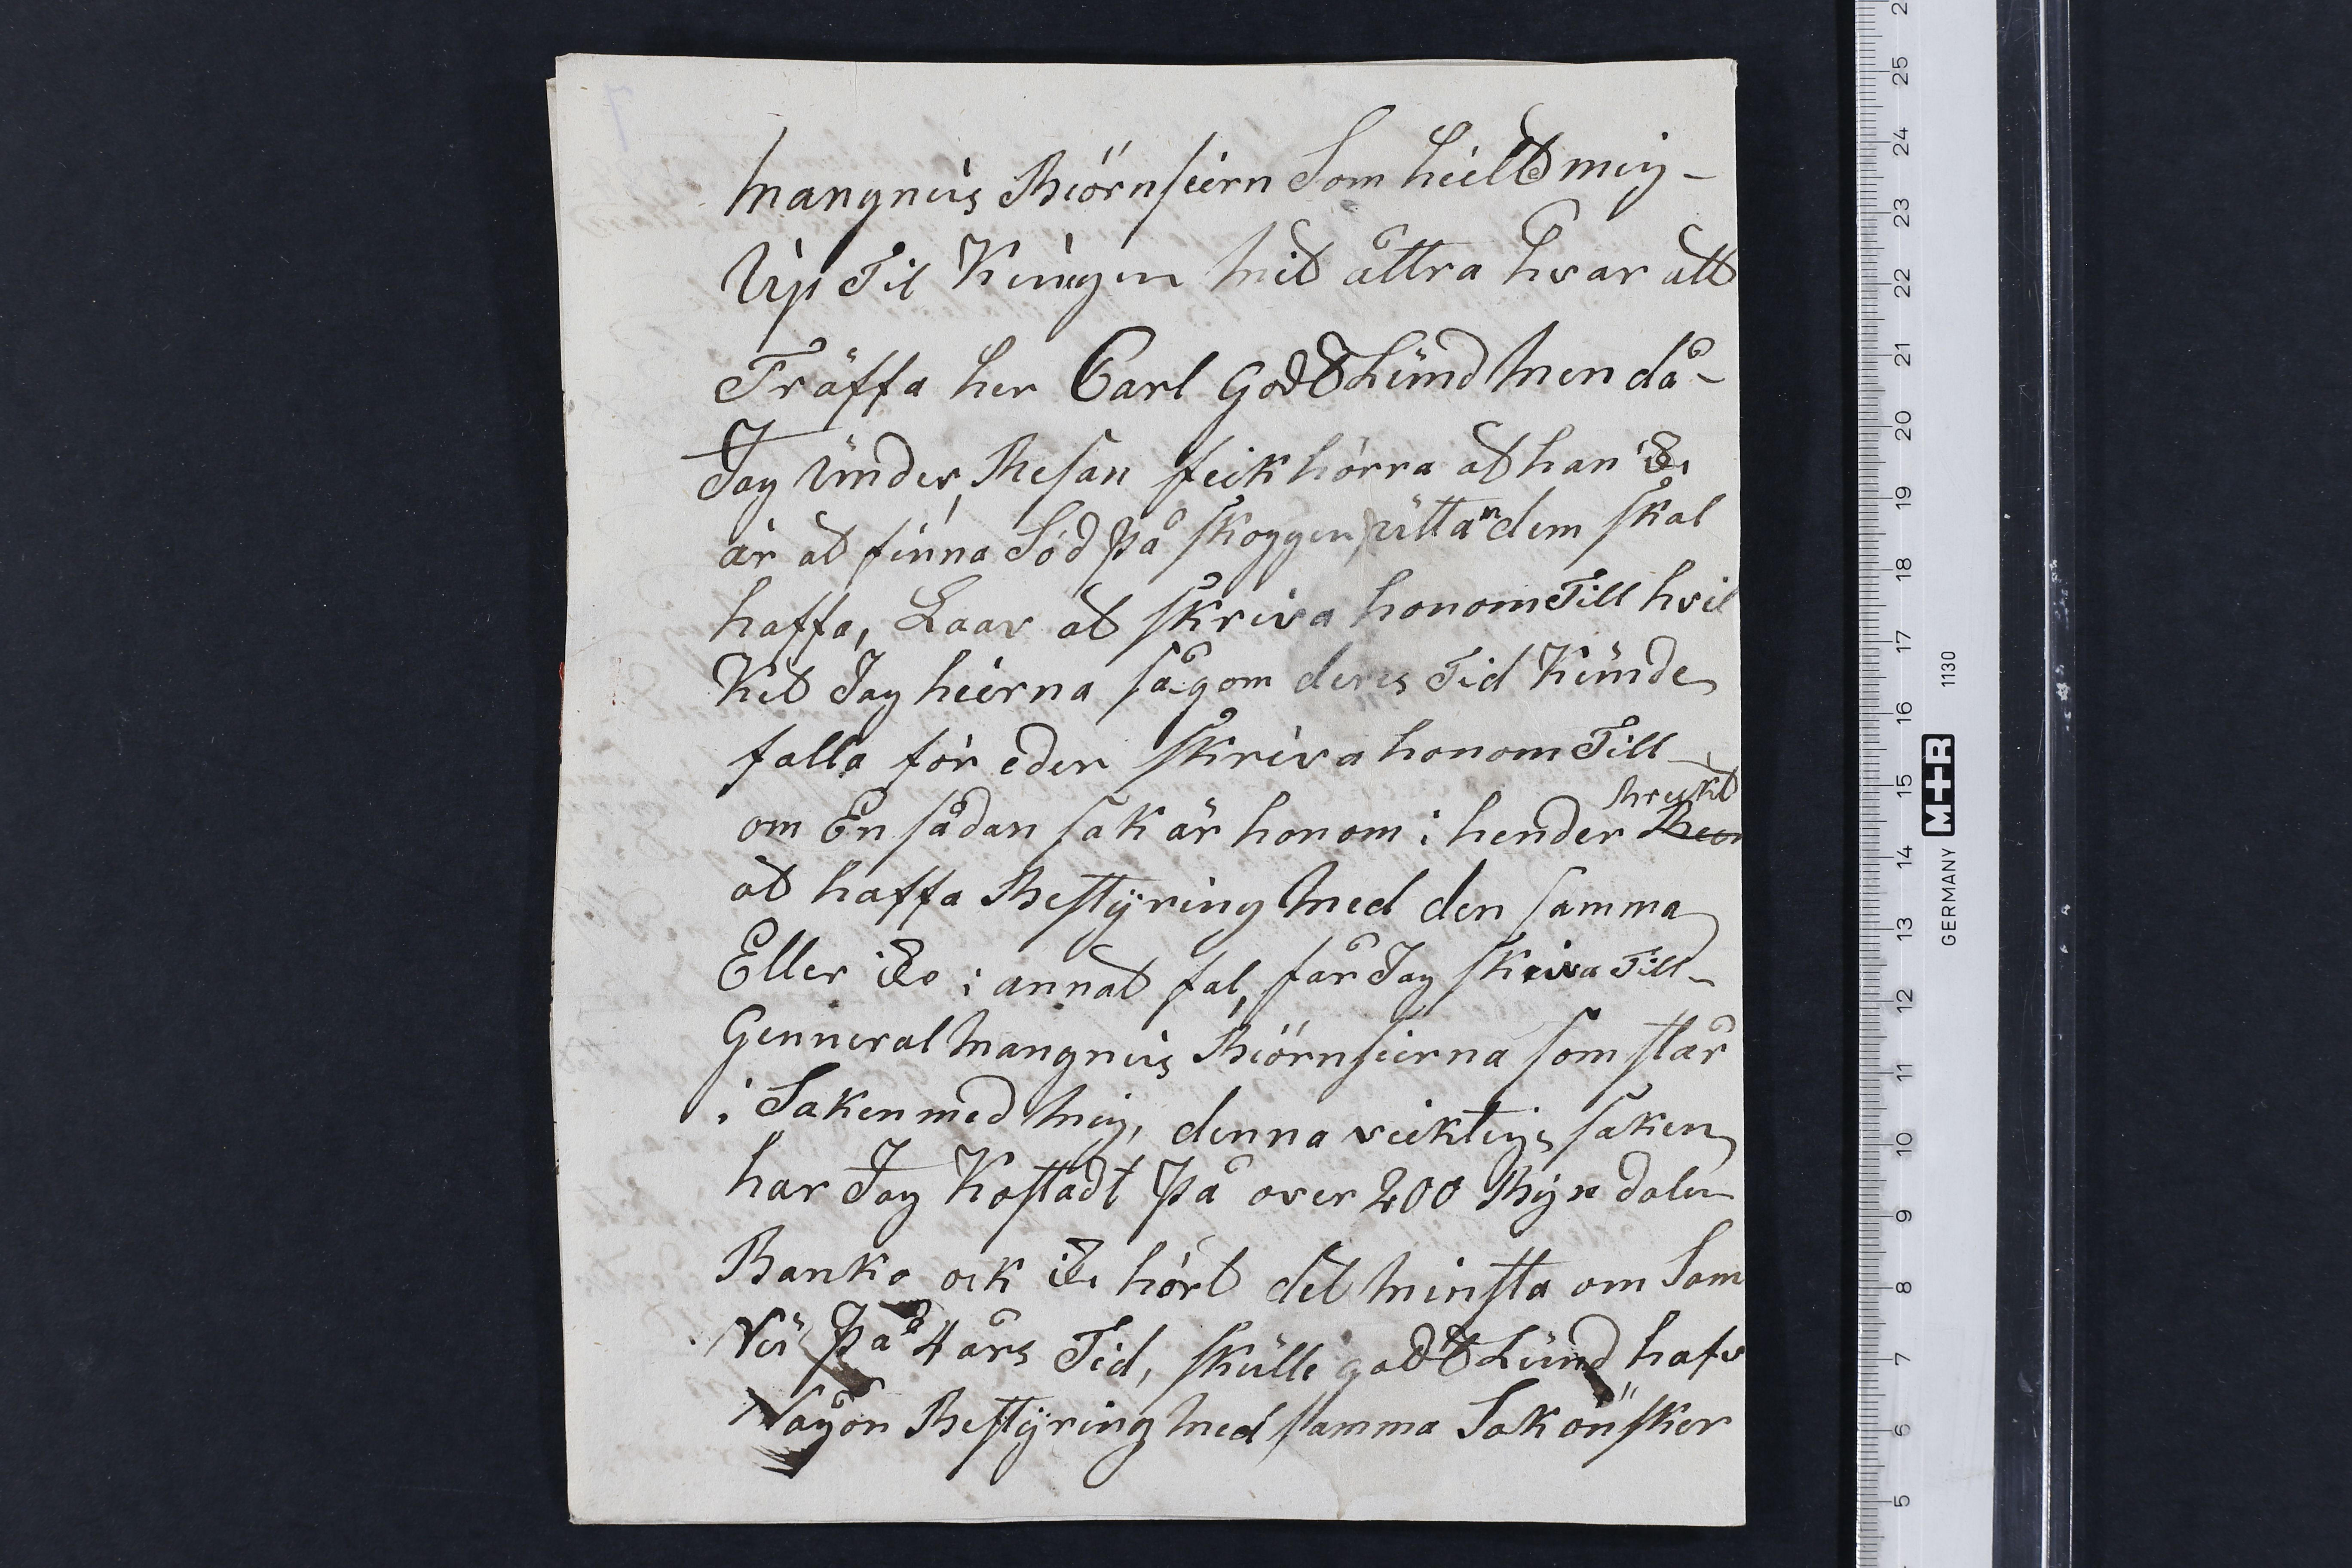 Mangnus Biörnsiern Som hielt mig -
Up Til Kungen Mit åttra hvar att
Träffa her Carl GodtLund Men då -
Jag under Resan feik hörra at han Ike
är at finna Söd på skoggen, utta n dem skal
haffa, Laav at skriva honom Till hvil
Ket Jag hierna såg om deres Tid Kunde
falla för eder skriva honom Till
om En sådan sak är honom i hender Breikt
at haffa Bestyring Med den samma
Eller Ike i annat fal, får Jag skriva Till -
Genneral Mangnus Biörnsierna som står
i Saken med Mig, denna veiktigs saken
har Jag Kostadt På over 200 daler
Banko oik Ike hört det Minsta om Som
Nu På 4 års Tid, skulle godtLund hafv
Nagon Bestyring Med samma Sak önsker
25 24 23 22 21 20 19 18 17 16 15 14 13 12 11 10 9 8 7 6 5
GERMANY M+R 1130